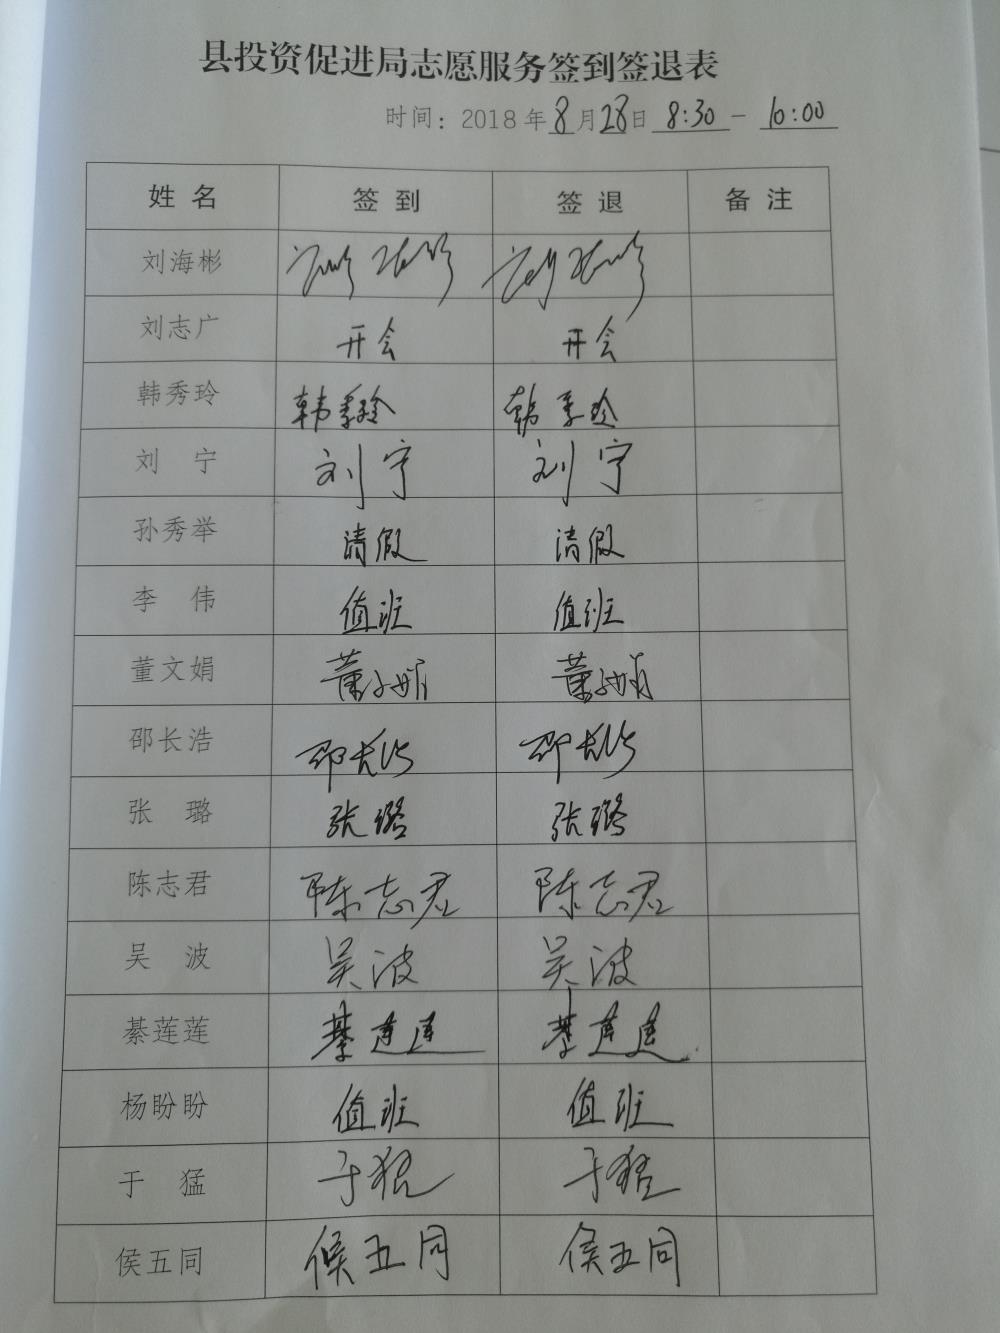 县投资促进局志愿服务签到签退表
时间：2018年8月28日 8:30－10:00
姓 名 签 到 签 退 备 注
刘海彬 刘海彬 刘海彬
刘志广 开会 开会
韩秀玲 韩秀玲 韩秀玲
刘 宁 刘宁 刘宁
孙秀举 请假 请假
李 伟 值班 值班
董文娟 董文娟 董文娟
邵长浩 邵长浩 邵长浩
张 璐 张璐 张璐
陈志君 陈志君 陈志君
吴 波 吴波 吴波
綦莲莲 綦莲莲 綦莲莲
杨盼盼 值班 值班
于 猛 于猛 于猛
侯五同 侯五同 侯五同